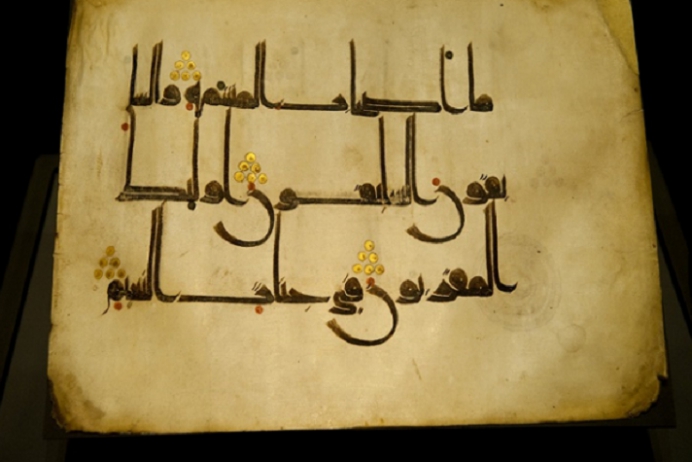 ما اصحاب المشمة والسا
بقون السبقون اولئك
المقربون في جنات النعيم